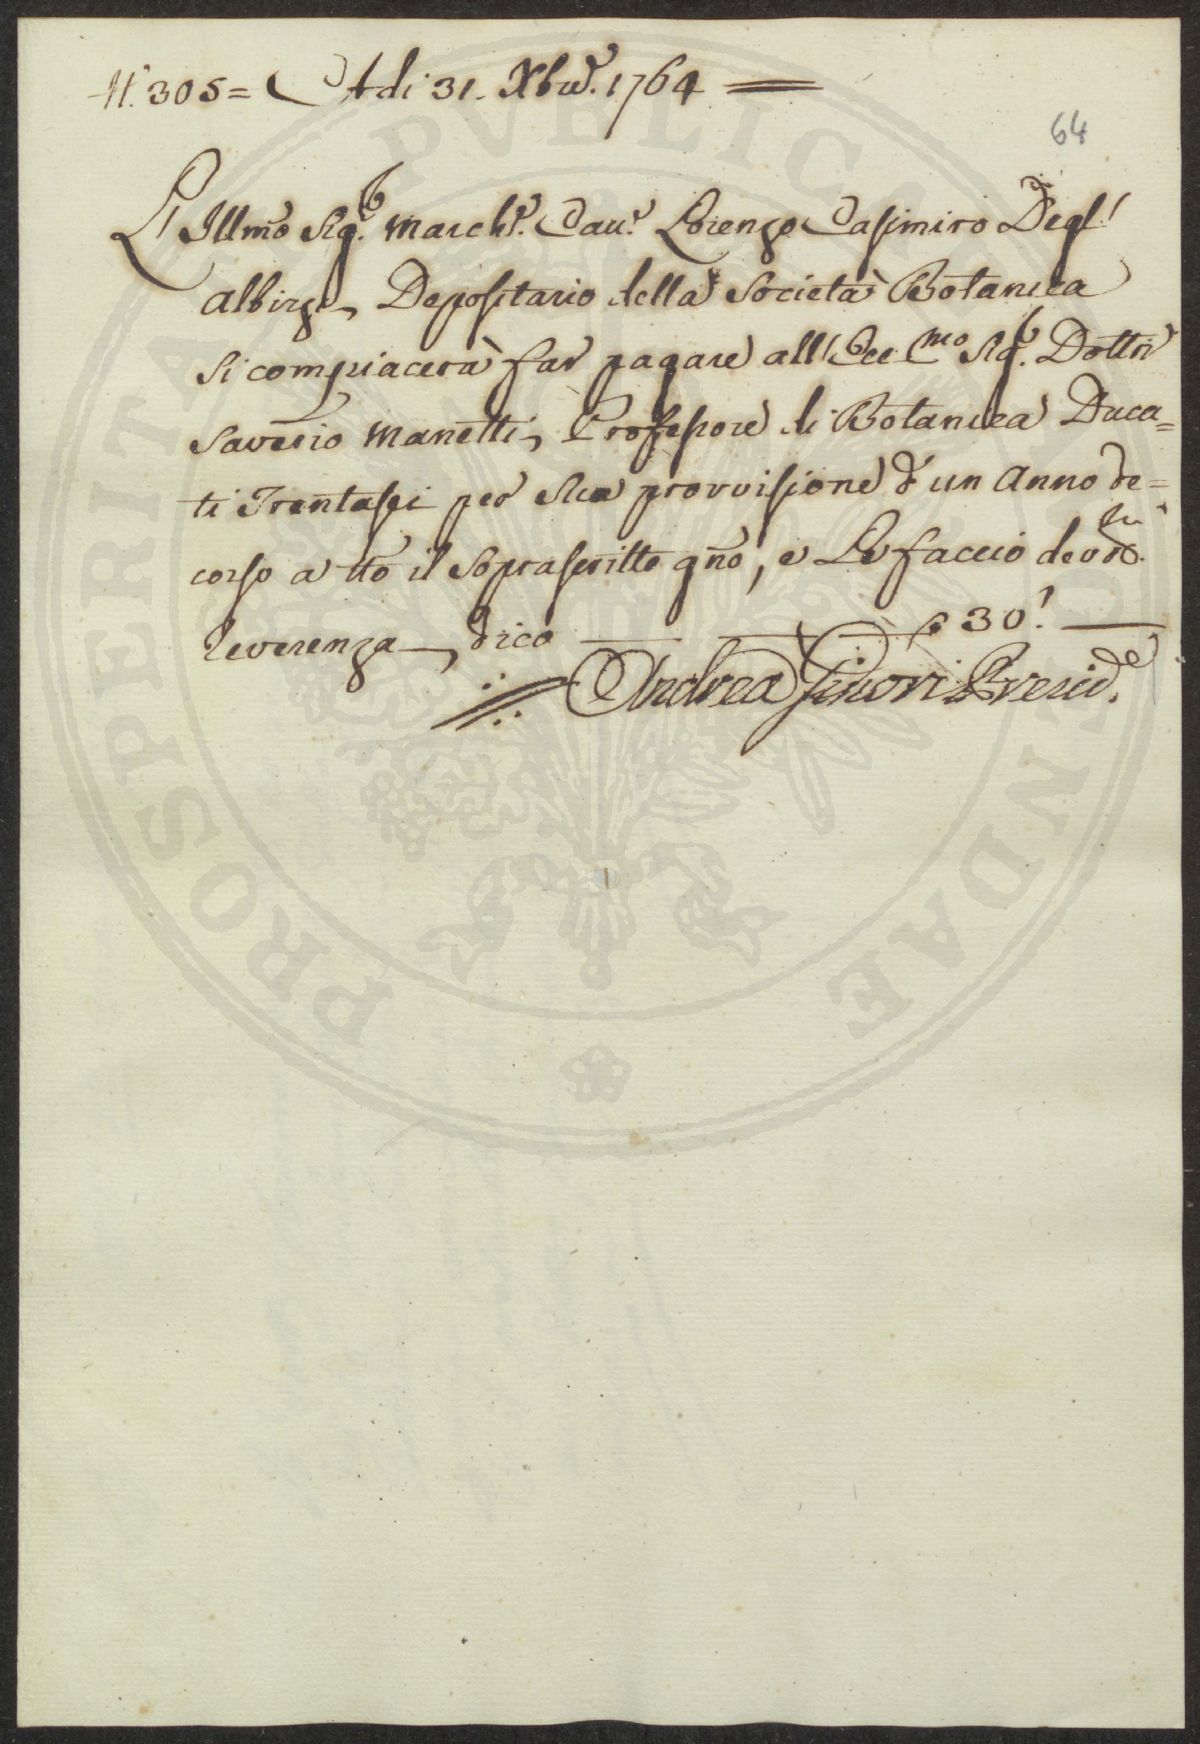 N.° 305 = Adi 31. Xbre. 1764
64
L'Illmo Sigr. March.e Cau.e Lorenzo Casimiro Degl'
Albizi, Depositario della Società Botanica
Si compiacerà far pagare all'Ecc.mo Sigr. Dottr
Saverio Manetti, Professore di Botanica Duca=
ti Trentasei per Sua provvisione d'un Anno de=
corso a tto il Soprascritto gno, e Le faccio devma.
Reverenza, dico 
Andrea Ginori Presid.te
PROSPERITATI PVBLICAE AVGENDAE